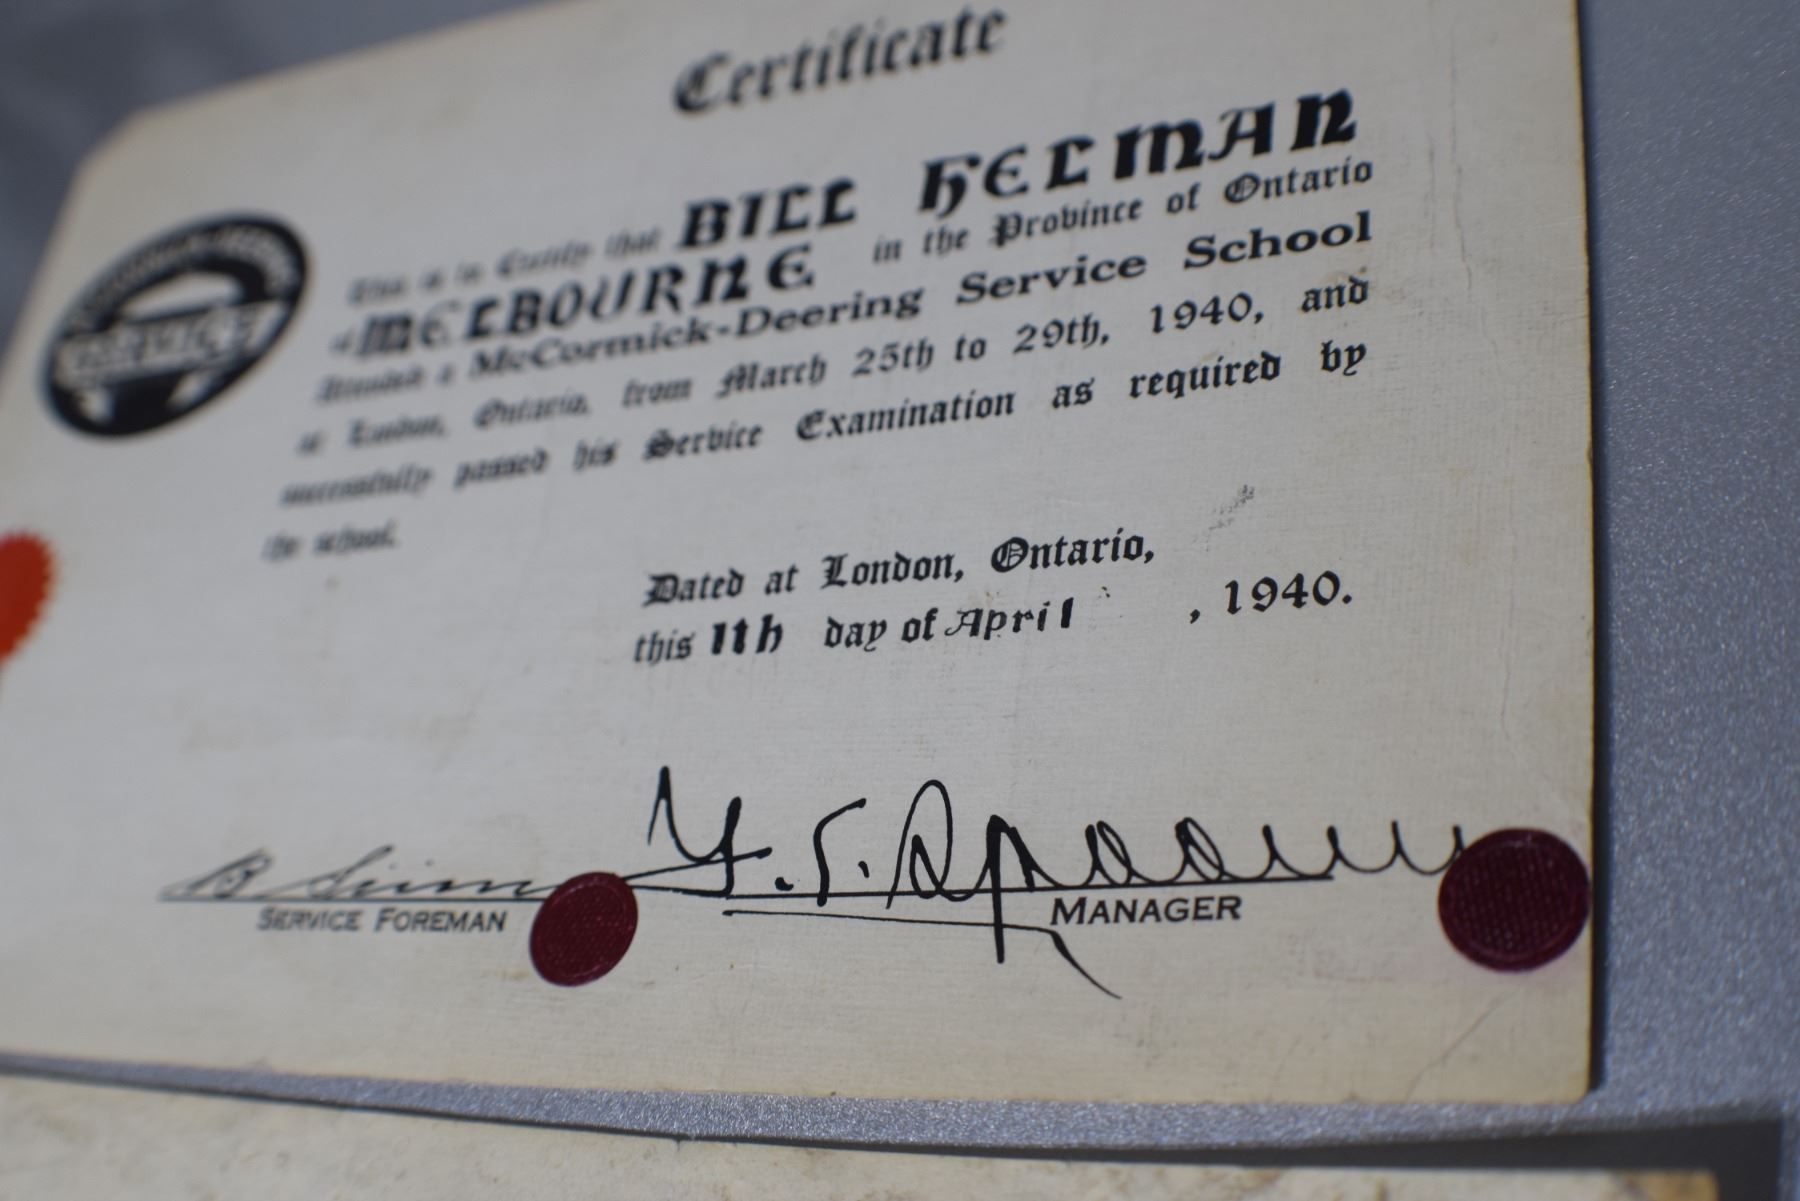 Certificate
This is to Certify that BILL HELMAN
of MELBOURNE in the Province of Ontario
Attended a McCormick-Deering Service School
at London, Ontario, from March 25th to 29th, 1940, and
successfully passed his Service Examination as required by
the school.
McCORMICK-DEERING
SERVICE
Dated at London, Ontario,
this 11th day of April , 1940.
B
SERVICE FOREMAN
MANAGER